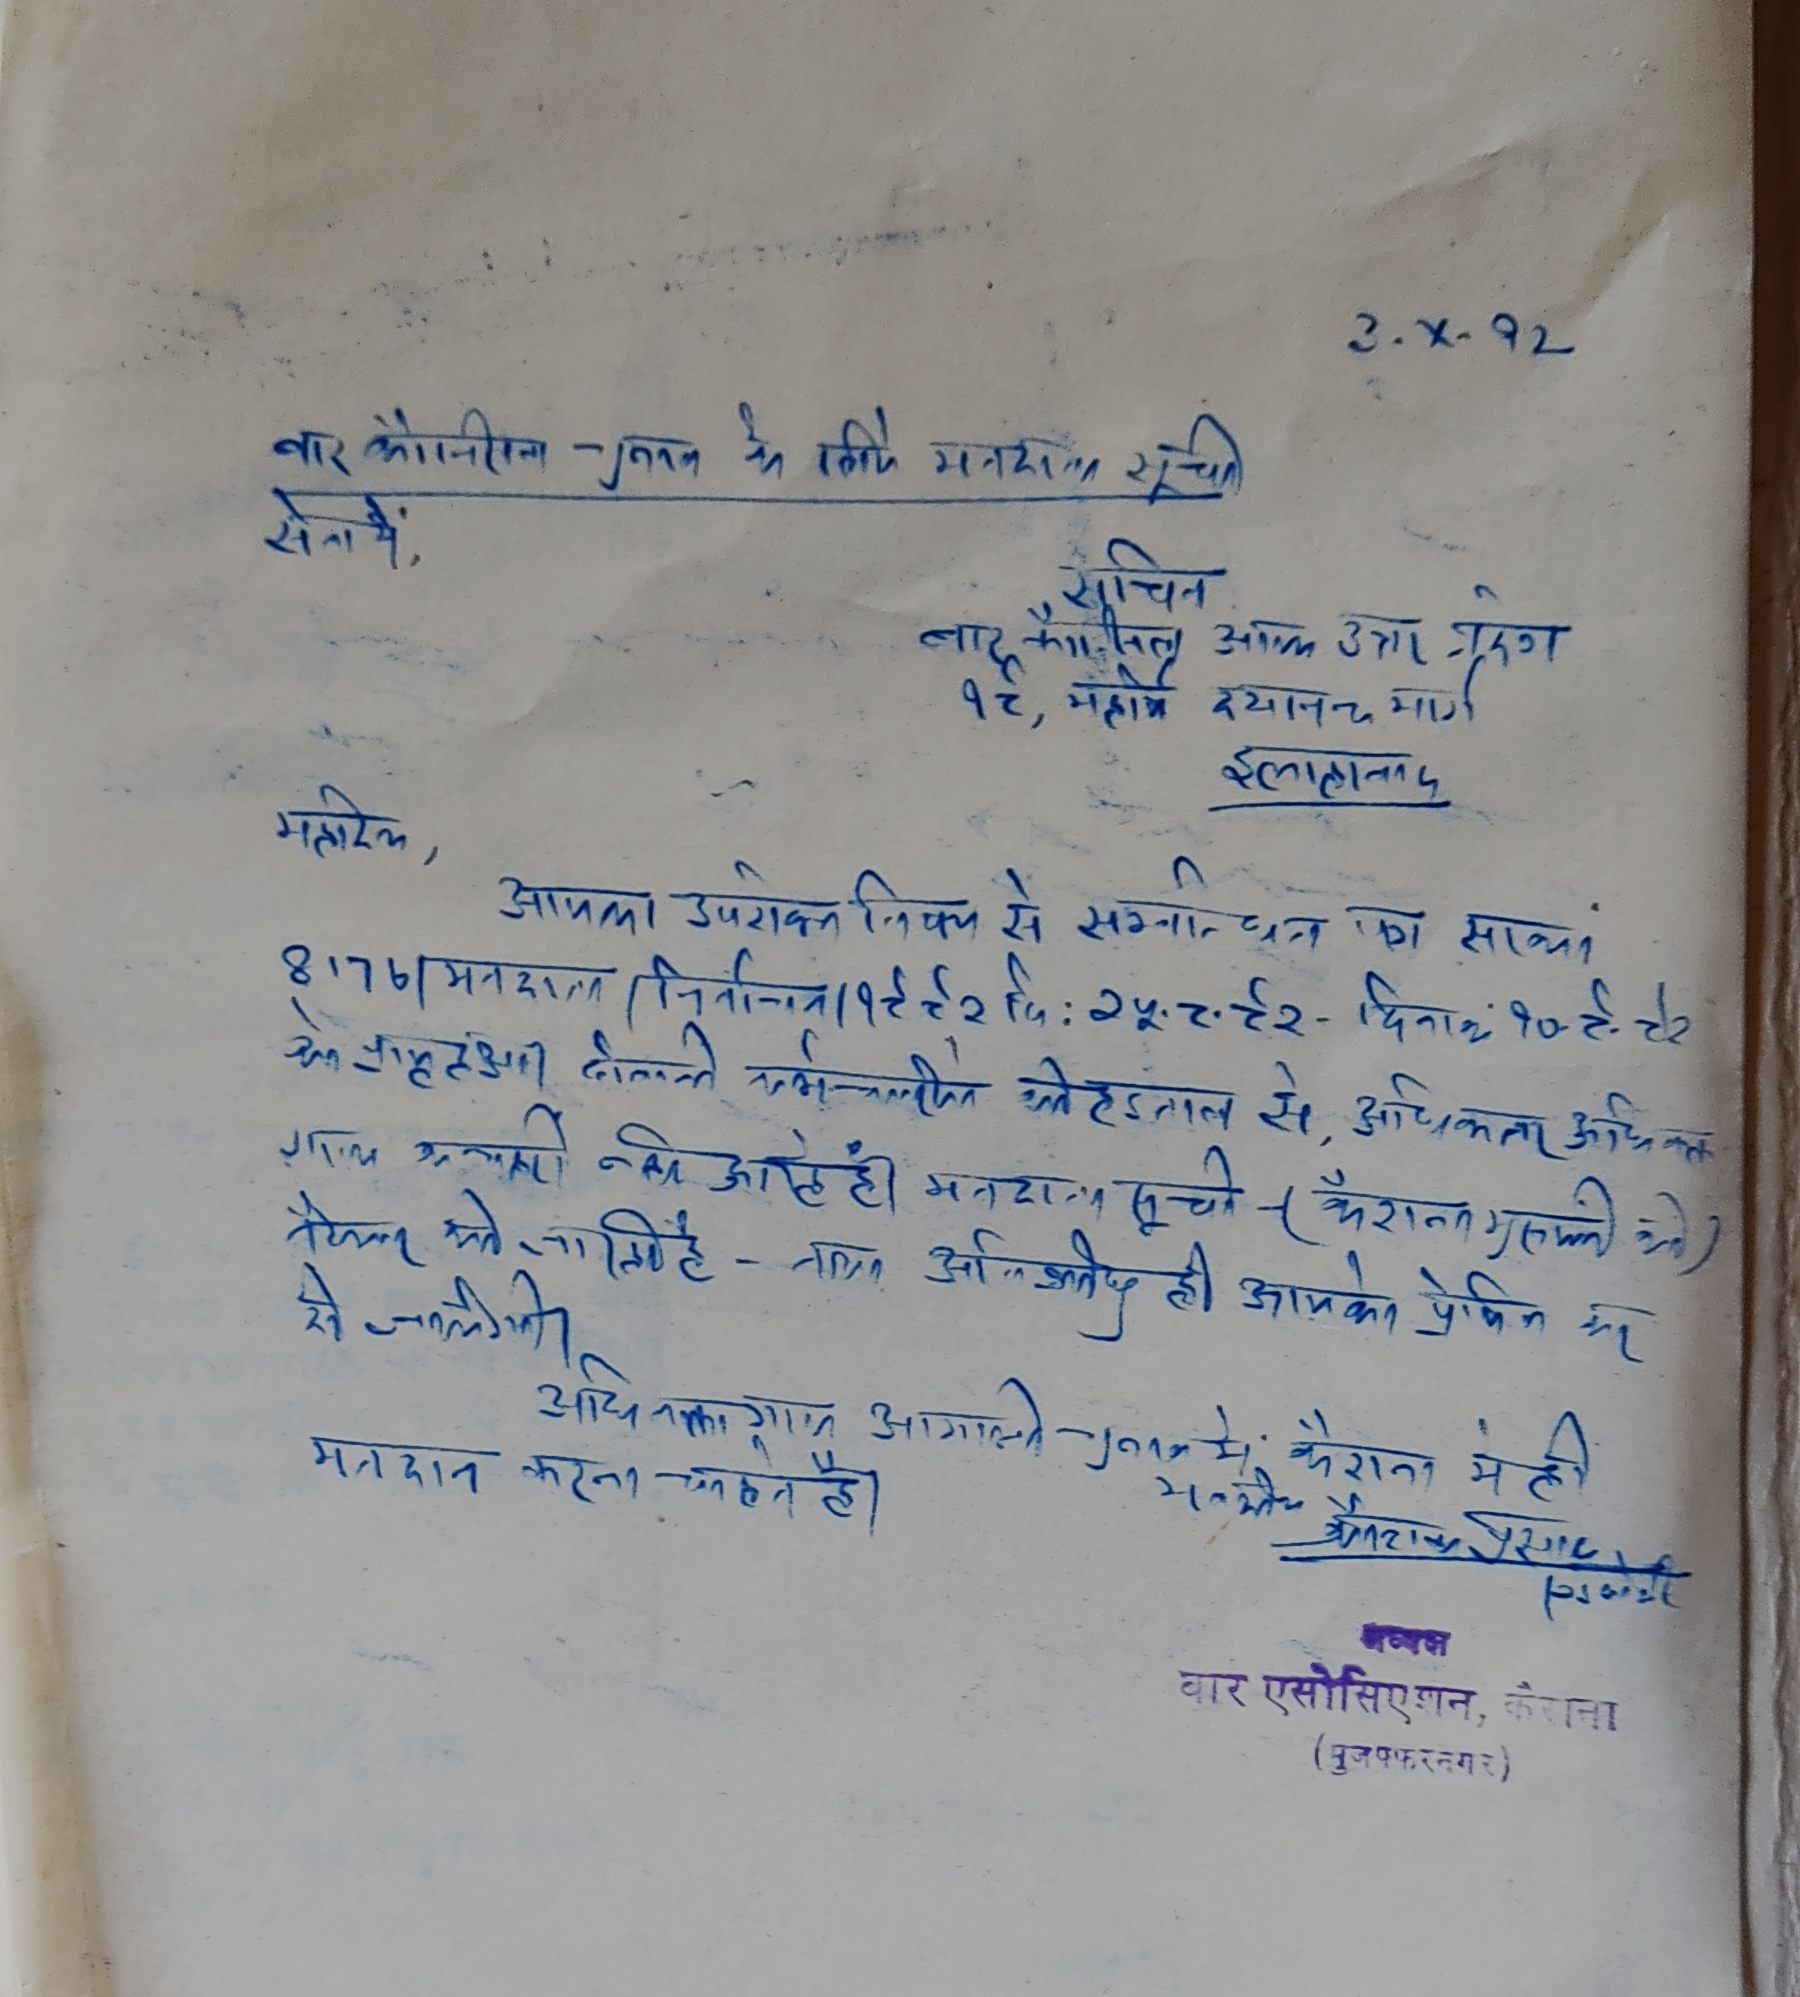 3.X.92
बार कौन्सिल चुनाव के लिये मतदाता सूची
सेवा में,
सचिव
बार कौन्सिल आफ उत्तर प्रदेश
१९, महर्षि दयानन्द मार्ग
इलाहाबाद
महोदय,
आपका उपरोक्त विषय से सम्बन्धित पत्र संख्या
8176/मतदाता/निर्वाचन/१९९२ दि: २५.८.९२ - दिनांक १०.९.९२
को प्राप्त हुआ। दीवानी कर्मचारियों की हडताल से, अधिकतर अधिवक्ता
गण कचहरी नहीं आते हैं। मतदाता सूची - (कैराना मुन्सफी की)
तैयार की जा रही है - तथा अति शीघ्र ही आपको प्रेषित कर
दी जायेगी।
अधिवक्तागण आगामी चुनाव में, कैराना में ही
मतदान करना चाहते हैं।
भवदीय
प्रसाद
एडवोकेट
अध्यक्ष
बार एसोसिएशन, कैराना
(मुजफ्फरनगर)